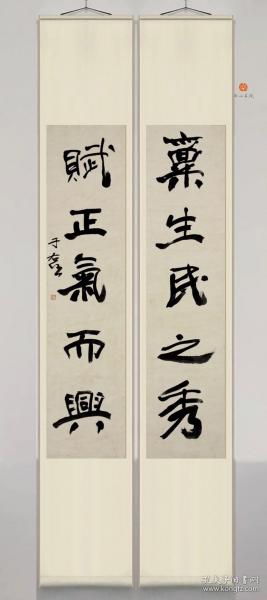 稟生民之秀
賦正氣而興
于右任
孔夫子旧书网
www.kongfz.com